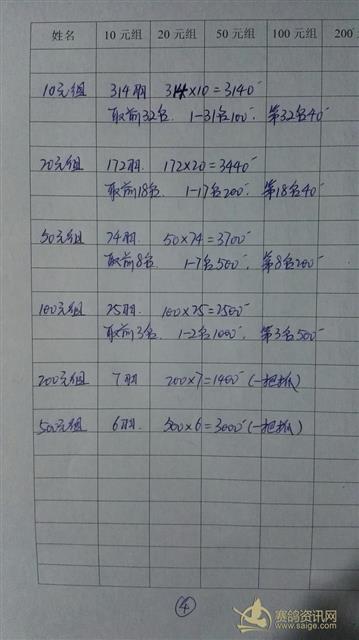 姓名 10元组 20元组 50元组 100元组 200
10元组 314羽 314×10=3140-
取前32名. 1-31名100-. 第32名40-
20元组 172羽 172×20=3440-
取前18名 1-17名200-. 第18名40-
50元组 74羽. 50×74=3700-
取前8名 1-7名500-. 第8名200-
100元组 25羽. 100×25=2500-
取前3名 1-2名1000-. 第3名500-
200元组 7羽 200×7=1400-(一把抓)
500元组 6羽. 500×6=3000-(一把抓)
④
赛鸽资讯网
www.saige.com